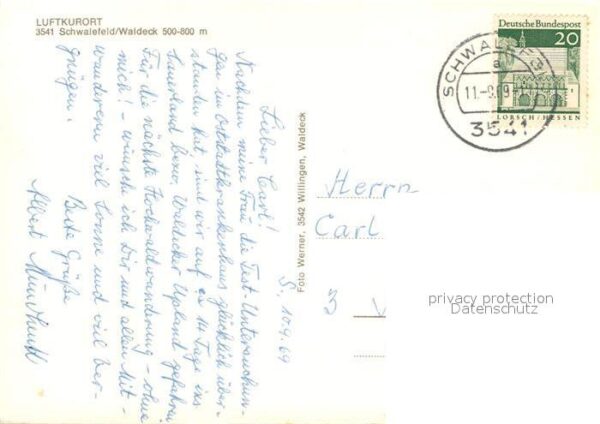 LUFTKURORT
3541 Schwalefeld/Waldeck 500-800 m
S., 10.9.69
Lieber Carl!
Nachdem meine Frau die Test-Untersuchun-
gen im Oststadtkrankenhaus glücklich über-
standen hat, sind wir auf ca 14 Tage ins
Sauerland bzw. Waldecker Upland gefahren.
Für die nächste Hochwaldwanderung - ohne
mich! - wünsche ich Dir und allen Mit-
wanderern viel Sonne und viel Ver-
gnügen.
Beste Grüße
Albert
Foto Werner, 3542 Willingen, Waldeck
Herrn
Carl
3
Deutsche Bundespost
20
LORSCH/HESSEN
SCHWALEF
a
11.-9.69
3541
privacy protection
Datenschutz